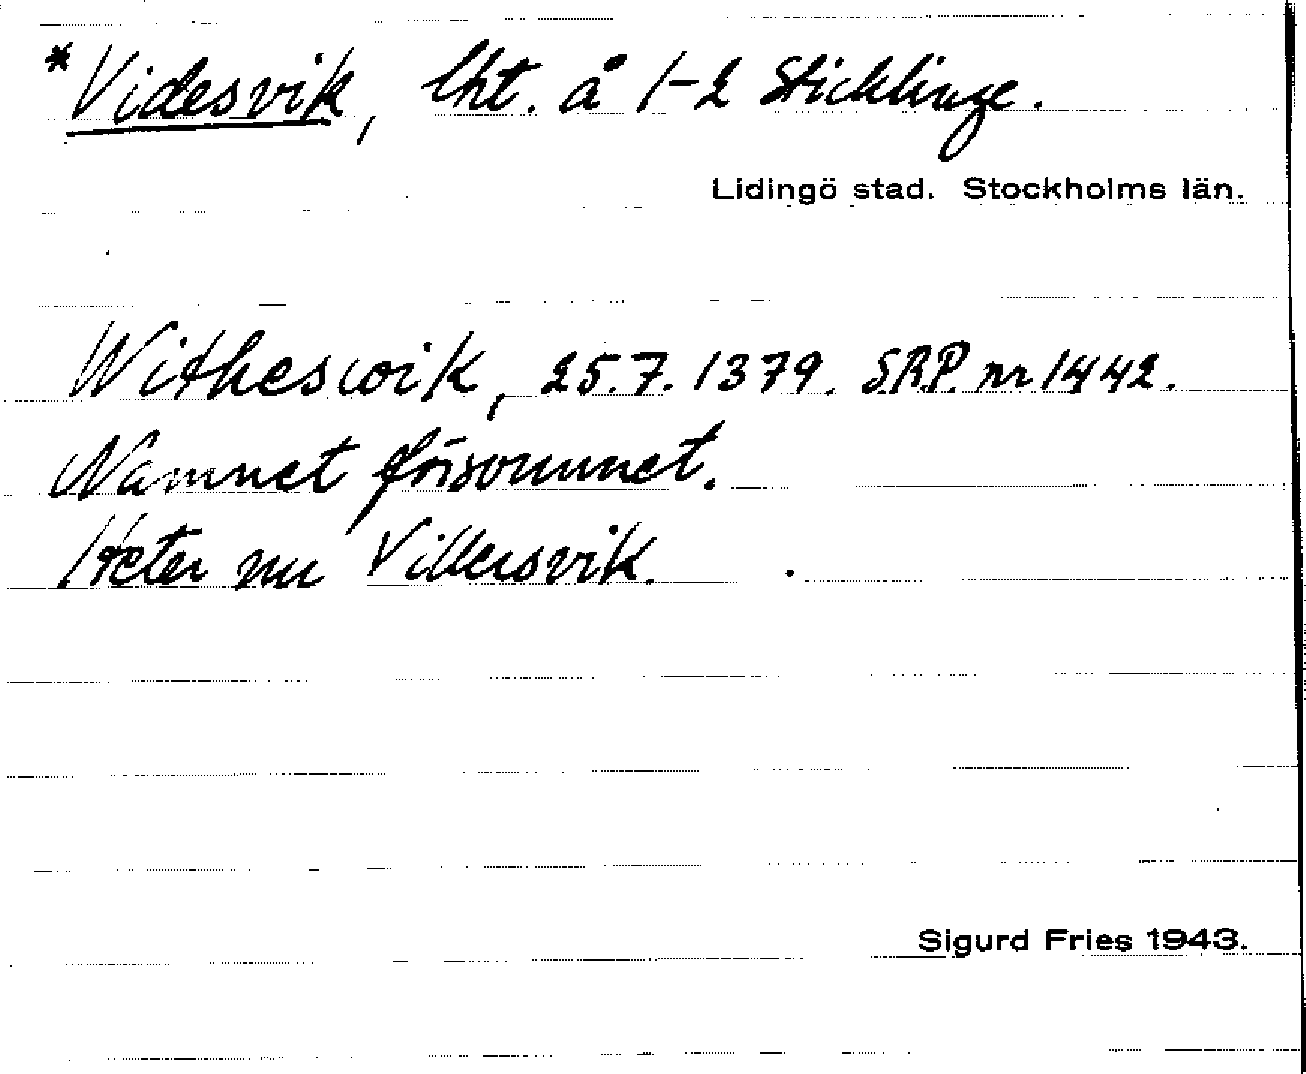 *Videsvik, lht. å 1-2 Sticklinge.
Lidingö stad. Stockholms län.
Witheswik, 25.7.1379. SRP. nr 1442.
Namnet försvunnet.
Heter nu Villersvik.
Sigurd Fries 1943.